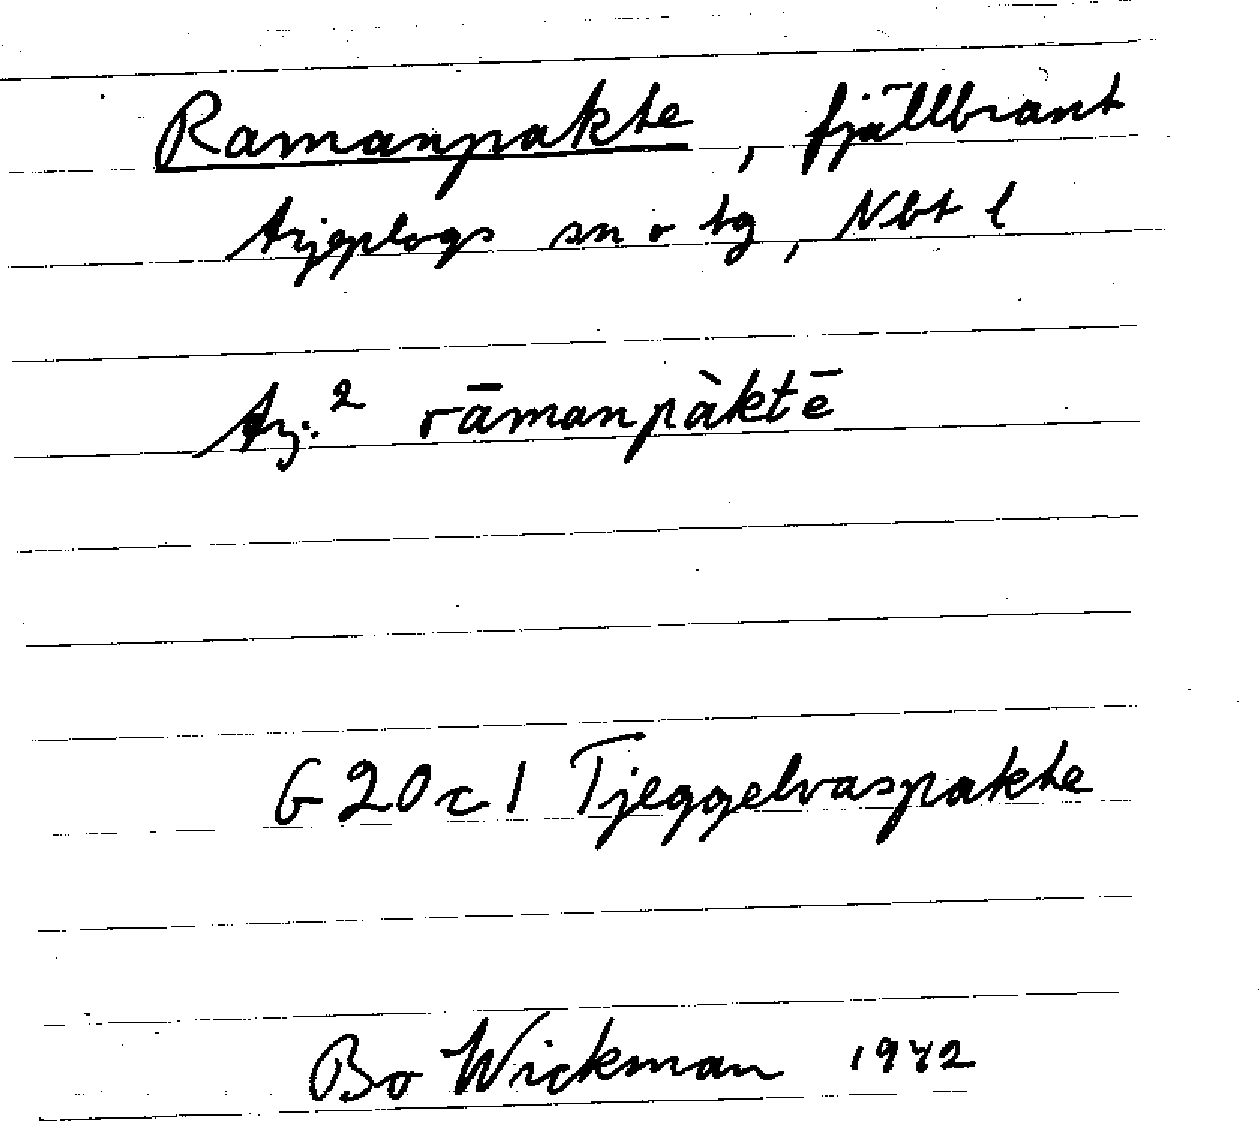 Ramanpakte, fjällbrant
Arjeplogs sn o tg, Nbt l
Arj:² rāmanpàktē
G 20 c 1 Tjeggelvaspakte
Bo Wickman 1942